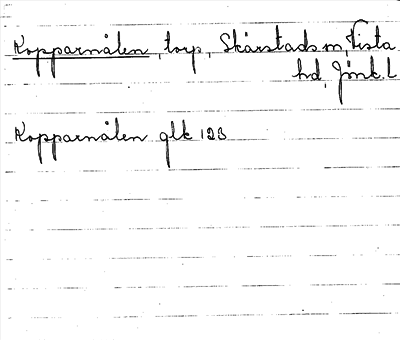 Kopparnålen, torp, Skärstads sn, Vista
hd, Jönk. L
Kopparnålen glk 123